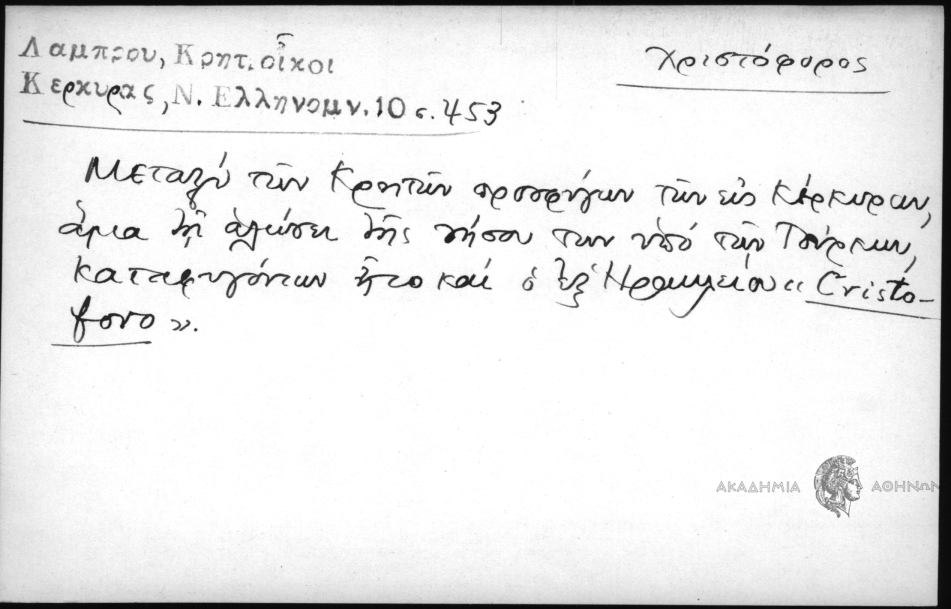 Λαμπρου, Κρητ. οἶκοι
Κερκυρας, Ν. Ελληνομν. 10 σ. 453
Χριστόφορος
Μεταξύ τῶν Κρητῶν προσφύγων τῶν εἰς Κέρκυραν,
ἅμα τῇ ἁλώσει τῆς νήσου των ὑπό τῶν Τούρκων,
καταφυγόντων ἦτο καί ὁ ἐξ Ἡρακλείου « Cristo-
fono ».
ΑΚΑΔΗΜΙΑ ΑΘΗΝΩΝ